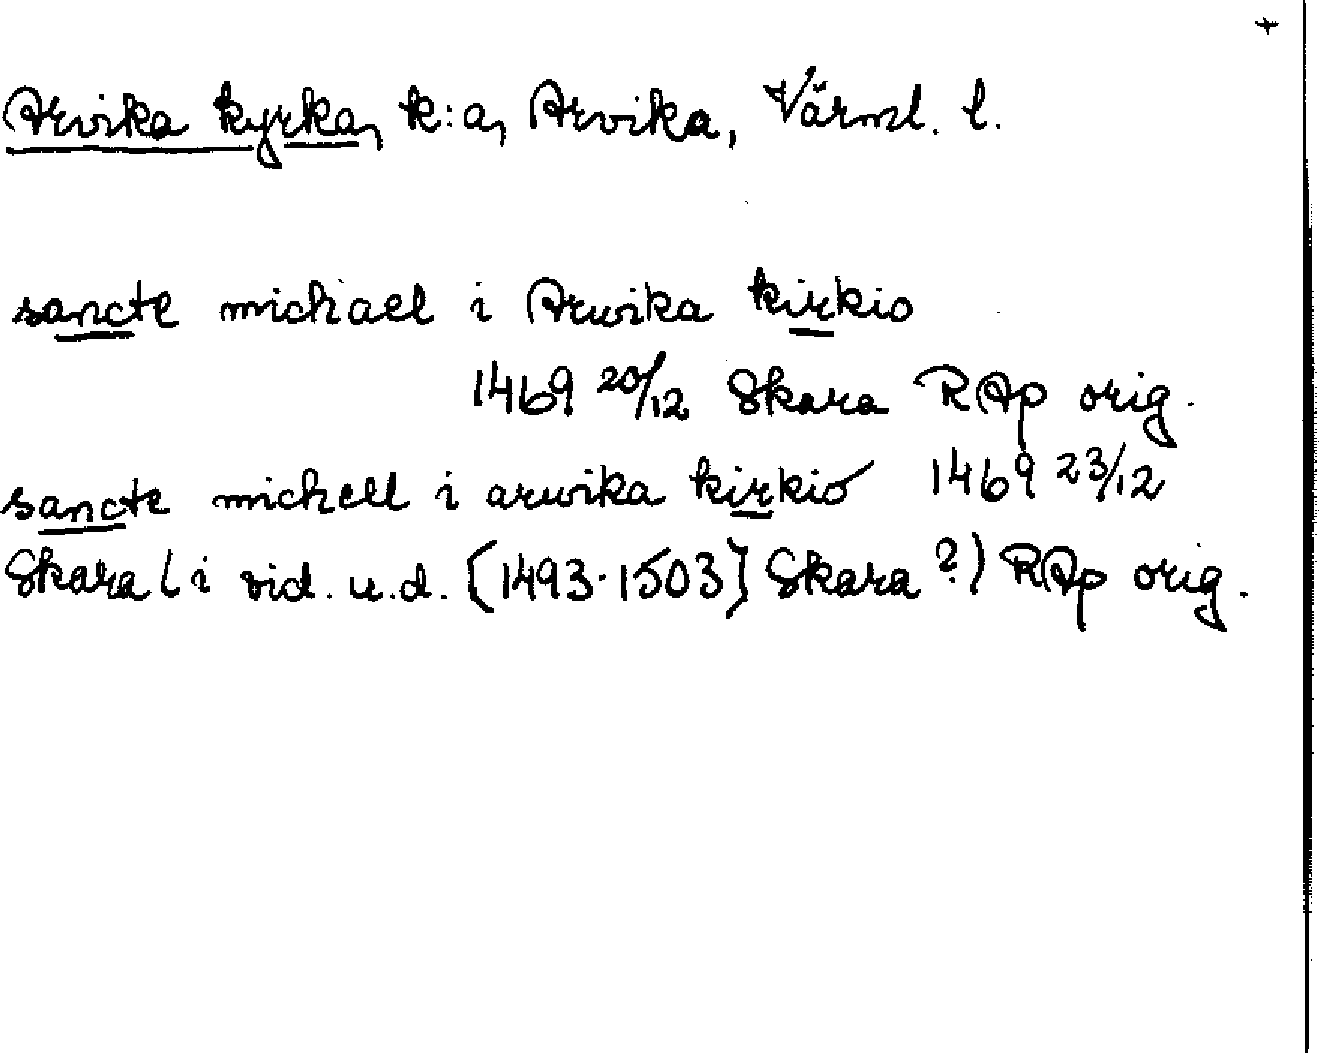 +
Arvika kyrka, k:a, Arvika, Värml. l.
sancte michael i Arwika kirkio
1469 20/12 Skara RAp orig.
sancte michell i arwika kirkio 1469 23/12
Skara (i vid. u.d. [1493-1503] Skara?) RAp orig.